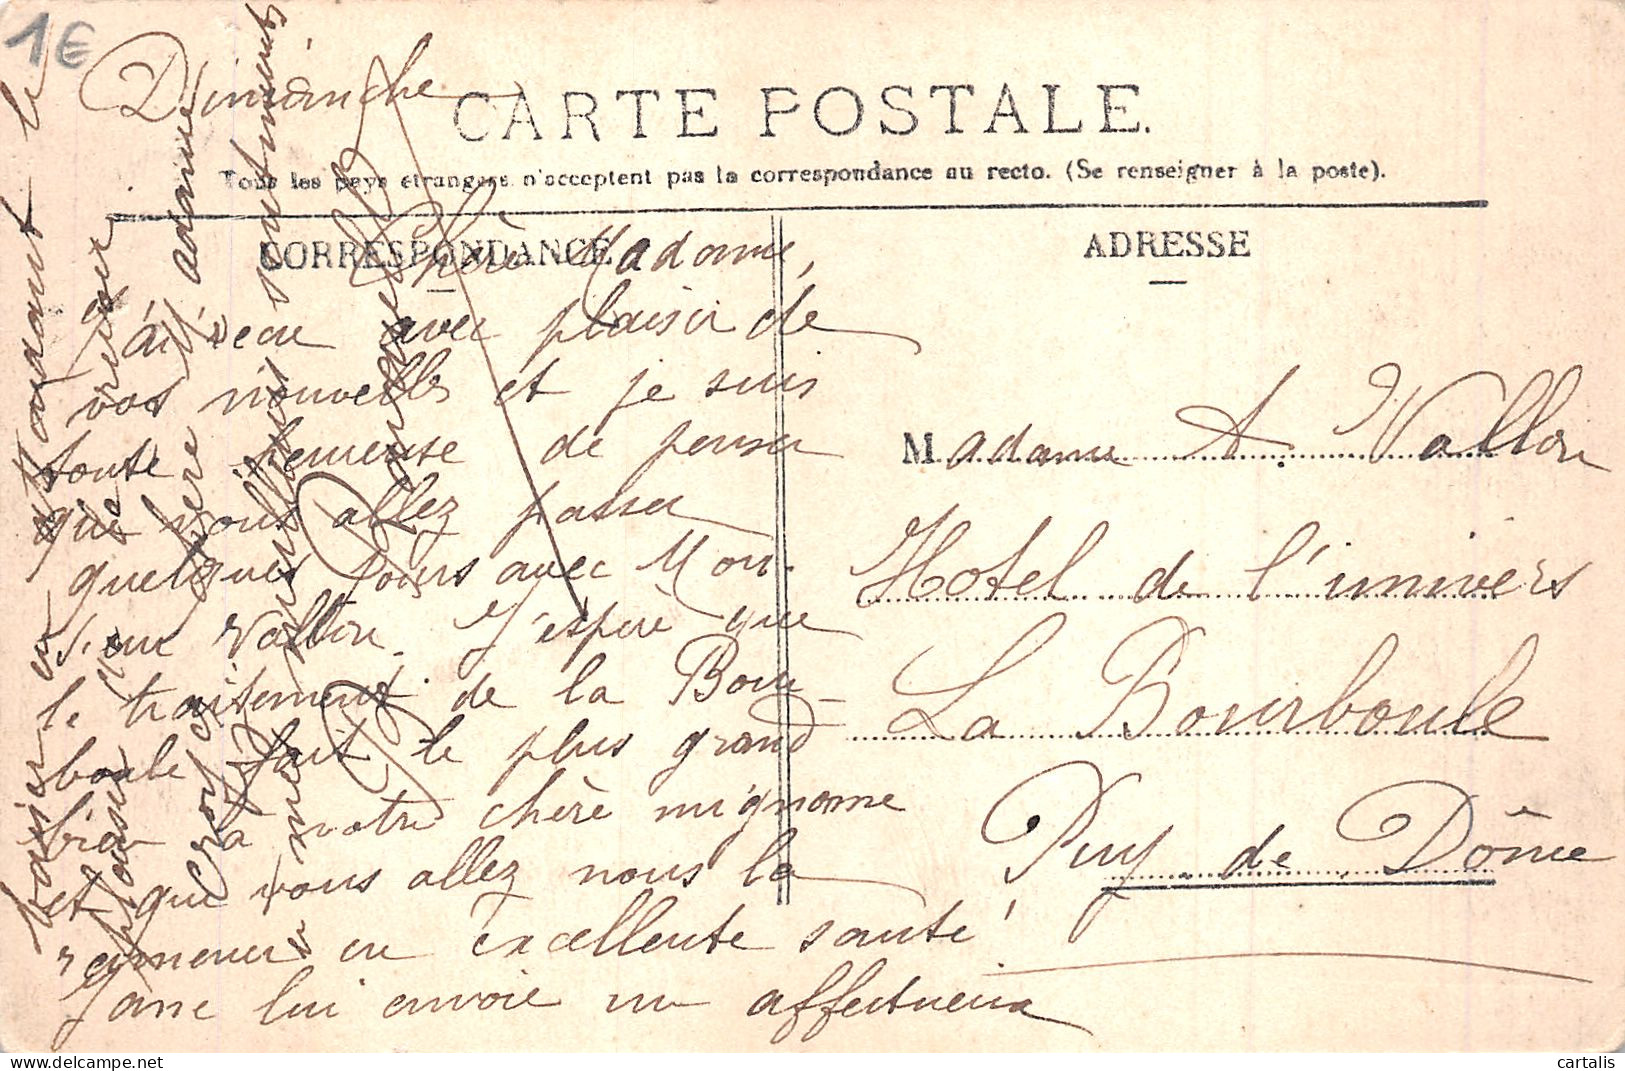 1€
Dimanche
CARTE POSTALE.
Tous les pays étrangers n'acceptent pas la correspondance au recto. (Se renseigner à la poste).
CORRESPONDANCE
ADRESSE
Chère Madame,
J'ai recu avec plaisir de
vos nouvelles et je suis
toute heureuse de penser
que vous allez passer
quelques jours avec Mon-
sieur Vallon. J'espère que
le traitement de la Bour-
boule fait le plus grand
bien à notre chère mignonne
et que vous allez nous la
ramener en excellente santé!
Jane lui envoie un affectueux
baiser en attendant le
plaisir de
Croyez
Madame A. Vallon
Hotel de l'univers
La Bourboule
Puy de Dôme
cartalis